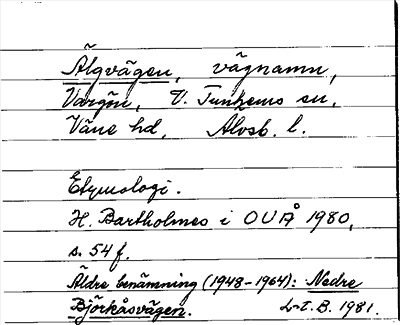 Älgvägen, vägnamn,
Vargön, V. Tunhems sn,
Väne hd, Älvsb. l.
Etymologi.
H. Bartholmes i OUÅ 1980,
s. 54 f.
Äldre benämning (1948-1964): Nedre
Björkåsvägen. L-E. B. 1981.